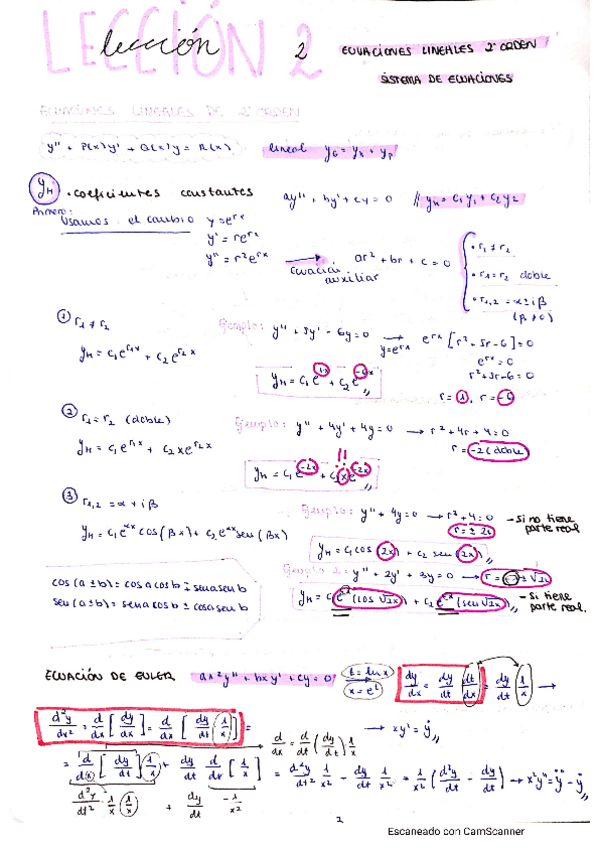 LECCIÓN 2
lección 2 ECUACIONES LINEALES 2º ORDEN
SISTEMA DE ECUACIONES
ECUACIONES LINEALES DE 2º ORDEN
y'' + P(x)y' + Q(x)y = R(x) lineal y_G = y_H + y_P
y_H • coeficientes constantes ay'' + by' + cy = 0 // y_H = c₁y₁ + c₂y₂
Primero:
Usamos el cambio y = e^{rx}
y' = re^{rx}
y'' = r²e^{rx} → ar² + br + c = 0
Ecuación auxiliar
• r₁ ≠ r₂
• r₁ = r₂ doble
• r₁,₂ = α ± iβ
(β ≠ 0)
① r₁ ≠ r₂
y_H = c₁e^{r₁x} + c₂e^{r₂x}
Ejemplo: y'' + 5y' - 6y = 0 → y = e^{rx} e^{rx}[r² + 5r - 6] = 0
e^{rx} = 0
r² + 5r - 6 = 0
y_H = c₁e^{1x} + c₂e^{-6x}
r = 1, r = -6
② r₁ = r₂ (doble)
y_H = c₁e^{r₁x} + c₂xe^{r₂x}
Ejemplo: y'' + 4y' + 4y = 0 → r² + 4r + 4 = 0
r = -2 (doble)
!!
y_H = c₁e^{-2x} + c₂xe^{-2x}
③ r₁,₂ = α + iβ
y_H = c₁e^{αx}cos(βx) + c₂e^{αx}sen(βx)
Ejemplo: y'' + 4y = 0 → r² + 4 = 0 - Si no tiene parte real
r = ± 2i
y_H = c₁cos(2x) + c₂ sen(2x)
Ejemplo 2: y'' + 2y' + 3y = 0 → r = ± √2i
y_H = c₁e^{-x}(cos √2x) + c₂e^{-x}(sen√2x) - Si tiene parte real.
cos(a ± b) = cosa cosb ∓ sena sen b
sen(a ± b) = sena cosb ± cosa sen b
ECUACIÓN DE EULER ax²y'' + bxy' + cy = 0 t = lnx
x = e^t
dy/dx = dy/dt dt/dx = dy/dt 1/x →
d²y/dx² = d/dx [dy/dx] = d/dx [dy/dt 1/x] = → xy' = ẏ
d/dx = d/dt (dy/dt) 1/x
= d/dx [dy/dt] 1/x + dy/dt d/dx [1/x] = d²y/dt² 1/x² - dy/dt 1/x² = 1/x² (d²y/dt² - dy/dt) → x²y'' = ÿ - ẏ
d²y/dt² 1/x 1/x + dy/dt -1/x²
2
Escaneado con CamScanner